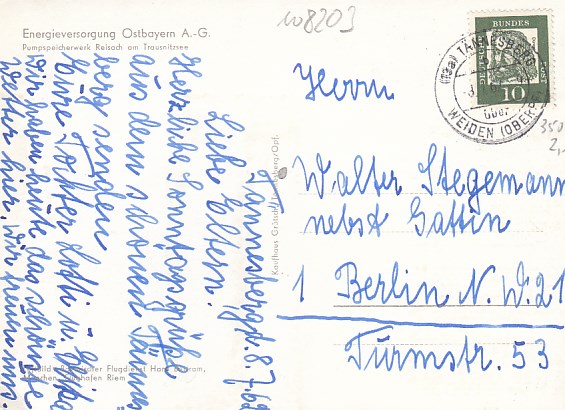 Energieversorgung Ostbayern A.-G.
Pumpspeicherwerk Reisach am Trausnitzsee
w8203
Tännesberg, d. 8.7.62
Liebe Eltern.
Herzliche Sonntagsgrüße
aus dem schönen Tännes-
berg senden
Eure Tochter Lotti u.
Wir haben heute das schönste
Wetter hier, wir freuen uns.
Herrn
Walter Stegemann
nebst Gattin
1 Berlin N.W. 21
Turmstr. 53
DEUTSCHE BUNDESPOST
10
TÄNNESBERG
über
WEIDEN (OBERPF)
350
2,-
Kaufhaus Tännesberg/Opf.
Flugdienst Hans Bertram,
München, Flughafen Riem